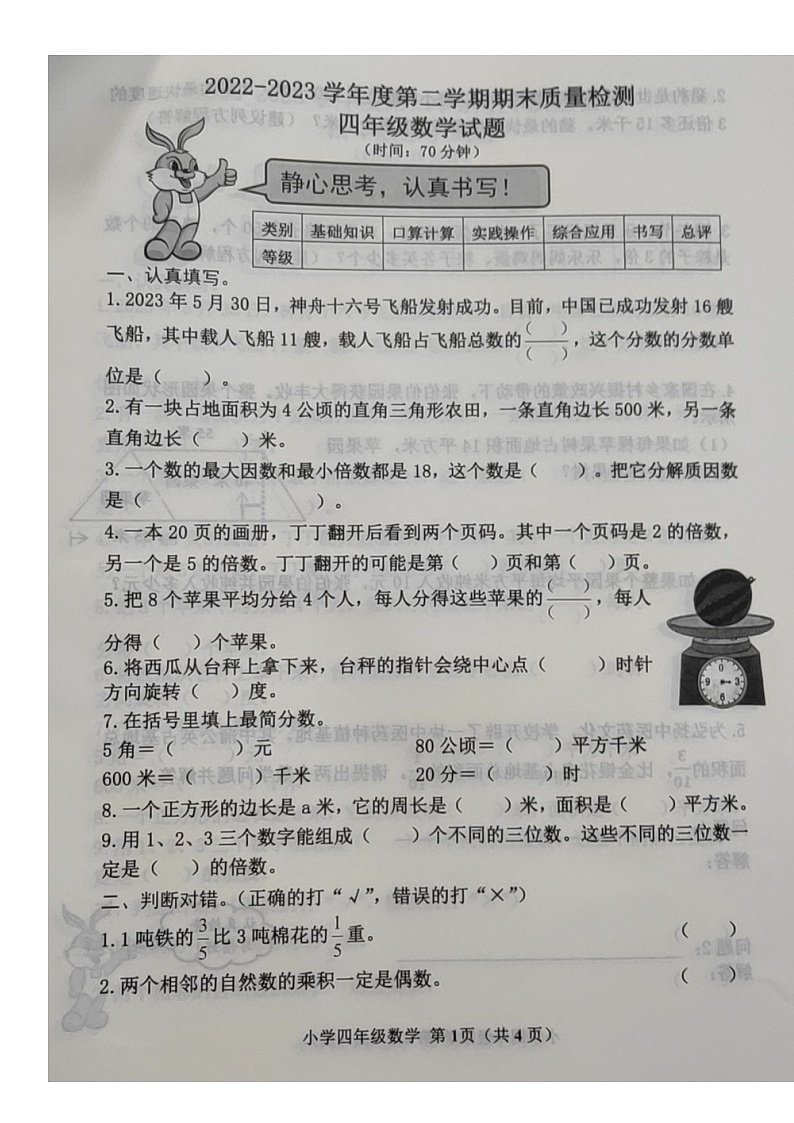 2022-2023 学年度第二学期期末质量检测
四年级数学试题
(时间：70 分钟)
静心思考，认真书写！
类别 基础知识 口算计算 实践操作 综合应用 书写 总评
等级
一、认真填写。
1.2023 年 5 月 30 日，神舟十六号飞船发射成功。目前，中国已成功发射 16 艘
飞船，其中载人飞船 11 艘，载人飞船占飞船总数的( )/( )，这个分数的分数单
位是（ ）。
2.有一块占地面积为 4 公顷的直角三角形农田，一条直角边长 500 米，另一条
直角边长（ ）米。
3.一个数的最大因数和最小倍数都是 18，这个数是（ ）。把它分解质因数
是（ ）。
4.一本 20 页的画册，丁丁翻开后看到两个页码。其中一个页码是 2 的倍数，
另一个是 5 的倍数。丁丁翻开的可能是第（ ）页和第（ ）页。
5.把 8 个苹果平均分给 4 个人，每人分得这些苹果的( )/( )，每人
分得（ ）个苹果。
0
9 3
6
6.将西瓜从台秤上拿下来，台秤的指针会绕中心点（ ）时针
方向旋转（ ）度。
7.在括号里填上最简分数。
5 角＝（ ）元 80 公顷＝（ ）平方千米
600 米＝（ ）千米 20 分＝（ ）时
8.一个正方形的边长是 a 米，它的周长是（ ）米，面积是（ ）平方米。
9.用 1、2、3 三个数字能组成（ ）个不同的三位数。这些不同的三位数一
定是（ ）的倍数。
二、判断对错。（正确的打“√”，错误的打“×”）
1.1 吨铁的3/5比 3 吨棉花的1/5重。 （ ）
2.两个相邻的自然数的乘积一定是偶数。 （ ）
小学四年级数学 第 1页（共 4 页）